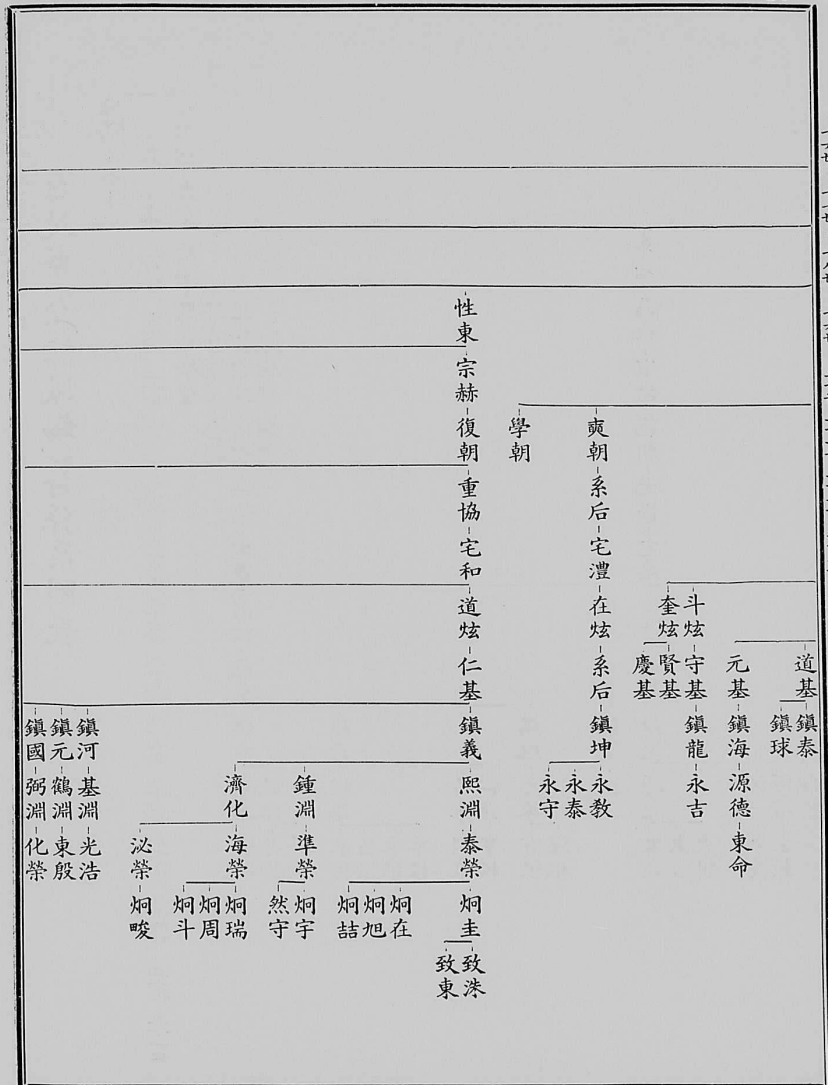 道基-鎮泰
鎮球
元基-鎮海-源德-東命
斗炫-守基-鎮龍-永吉
奎炫-賢基
慶基
奭朝-系后-宅澧-在炫-系后-鎮坤-永敎
永泰
永守
學朝
性東-宗赫-復朝-重協-宅和-道炫-仁基-鎮義-熙淵-泰榮-炯圭-致洙
致東
炯在
炯旭
炯喆
鍾淵-準榮-炯宇
然守
濟化-海榮-炯瑞
炯周
炯斗
泌榮-炯畯
鎮河-基淵-光浩
鎮元-鶴淵-東殷
鎮國-弼淵-化榮